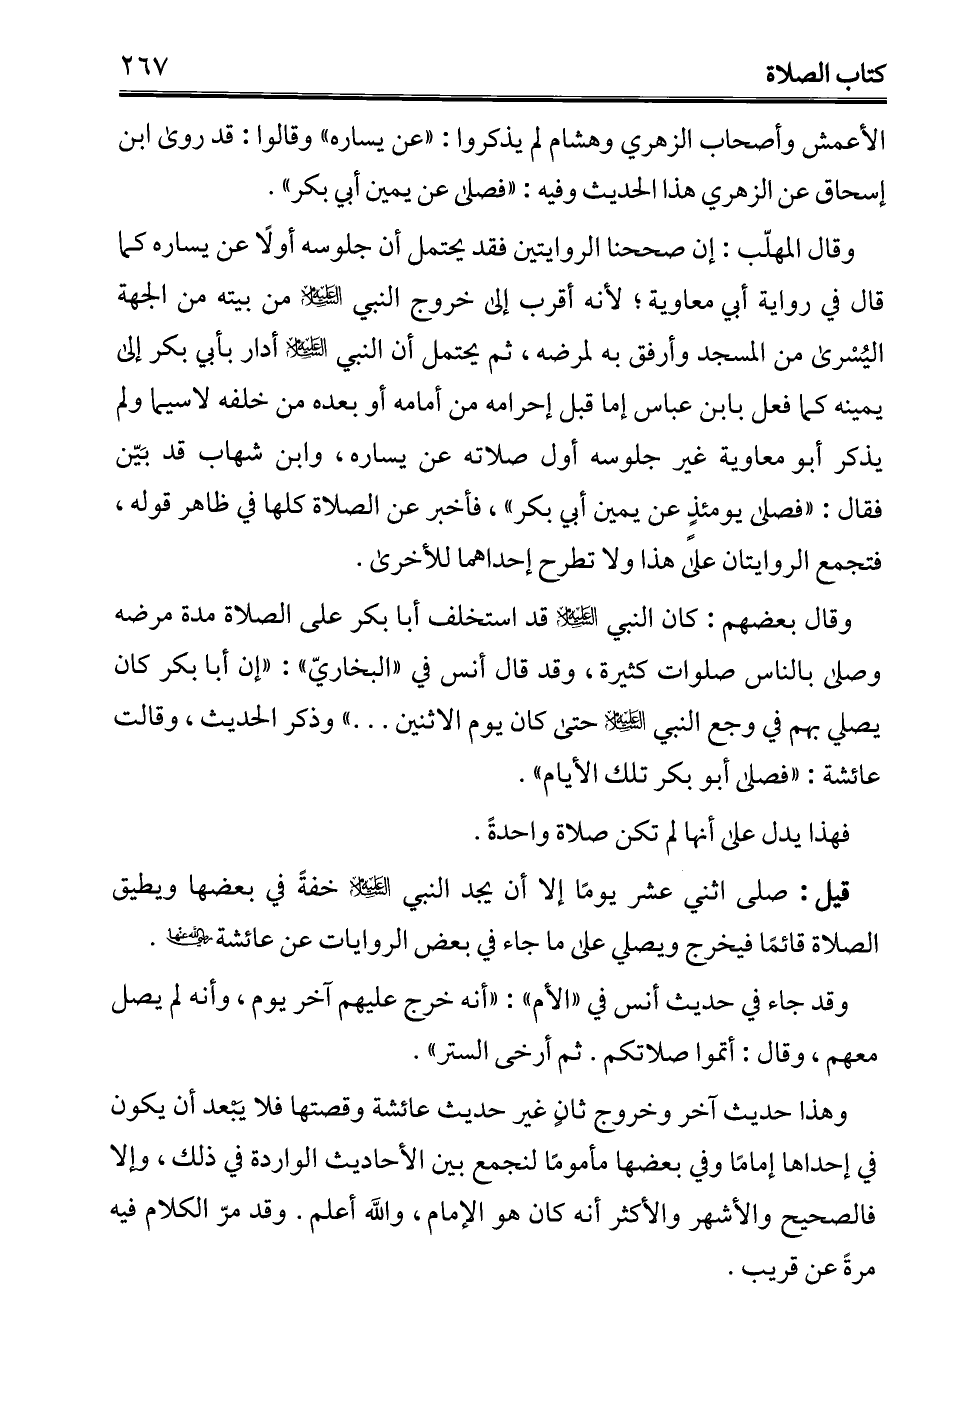 كتاب الصلاة ٢٦٧
الأعمش وأصحاب الزهري وهشام لم يذكروا : «عن يساره» وقالوا : قد روىٰ ابن
إسحاق عن الزهري هذا الحديث وفيه : «فصلىٰ عن يمين أبي بكر» .
وقال المهلّب : إن صححنا الروايتين فقد يحتمل أن جلوسه أولًا عن يساره كما
قال في رواية أبي معاوية ؛ لأنه أقرب إلىٰ خروج النبي عليه السلام من بيته من الجهة
اليُسْرىٰ من المسجد وأرفق به لمرضه ، ثم يحتمل أن النبي عليه السلام أدار بأبي بكر إلىٰ
يمينه كما فعل بابن عباس إما قبل إحرامه من أمامه أو بعده من خلفه لاسيما ولم
يذكر أبو معاوية غير جلوسه أول صلاته عن يساره ، وابن شهاب قد بيّن
فقال : «فصلىٰ يومئذٍ عن يمين أبي بكر» ، فأخبر عن الصلاة كلها في ظاهر قوله ،
فتجمع الروايتان علىٰ هذا ولا تطرح إحداهما للأخرىٰ .
وقال بعضهم : كان النبي عليه السلام قد استخلف أبا بكر على الصلاة مدة مرضه
وصلىٰ بالناس صلوات كثيرة ، وقد قال أنس في «البخاريّ» : «إن أبا بكر كان
يصلي بهم في وجع النبي عليه السلام حتىٰ كان يوم الاثنين ...» وذكر الحديث ، وقالت
عائشة : «فصلىٰ أبو بكر تلك الأيام» .
فهذا يدل علىٰ أنها لم تكن صلاة واحدةً .
قيل : صلى اثني عشر يومًا إلا أن يجد النبي عليه السلام خفةً في بعضها ويطيق
الصلاة قائمًا فيخرج ويصلي علىٰ ما جاء في بعض الروايات عن عائشة رضي الله عنها .
وقد جاء في حديث أنس في «الأم» : «أنه خرج عليهم آخر يوم ، وأنه لم يصل
معهم ، وقال : أتموا صلاتكم . ثم أرخى الستر» .
وهذا حديث آخر وخروج ثانٍ غير حديث عائشة وقصتها فلا يَبْعد أن يكون
في إحداها إمامًا وفي بعضها مأمومًا لنجمع بين الأحاديث الواردة في ذلك ، وإلا
فالصحيح والأشهر والأكثر أنه كان هو الإمام ، والله أعلم . وقد مرّ الكلام فيه
مرةً عن قريب .